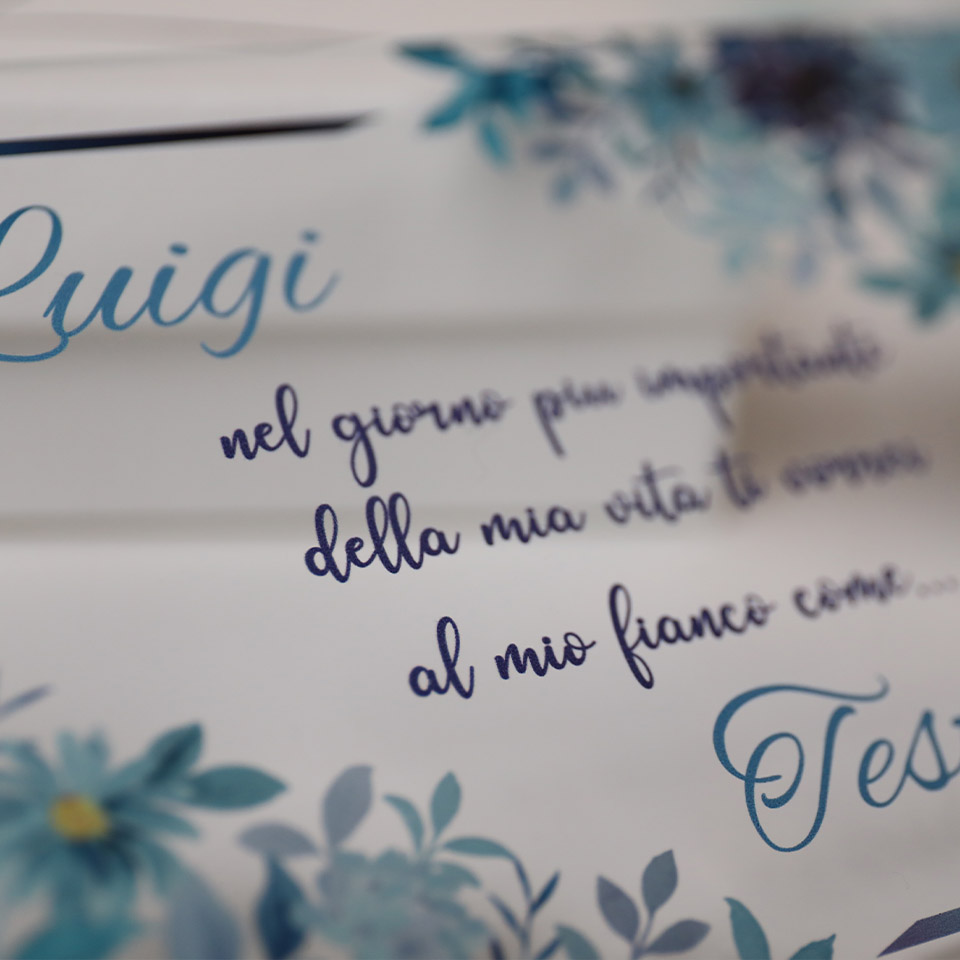 Luigi
nel giorno piu importante
della mia vita ti vorrei
al mio fianco come...
Tes